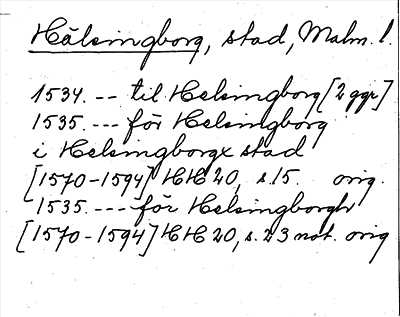 Hälsingborg, stad, Malm. l.
1534. -- til Helsingborg [2 ggr]
1535. --- för Helsingborg
i Helsingborgx stad
[1570-1594] HH 20, s. 15. orig.
1535. --- för Helsingborgh
[1570-1594] HH 20, s. 23 not. orig